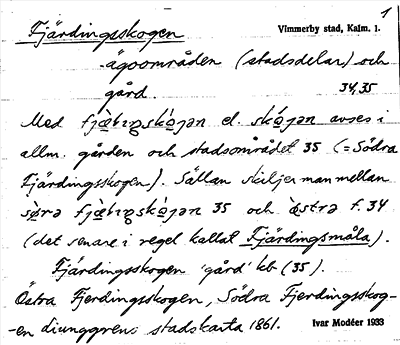 1
Fjärdingsskogen Vimmerby stad, Kalm. l.
ägoområden (stadsdelar) och
gård. 34,35
Med fjæ̀ɩŋskɷ́jən el. skɷ́jən avses i
allm. gården och stadsområdet 35 (= Södra
Fjärdingsskogen). Sällan skiljer man mellan
35 och f. 34
(det senare i regel kallat Fjärdingsmåla).
Fjärdingsskogen 'gård' kb (35).
Östra Fjerdingsskogen, Södra Fjerdingsskog-
-en Ljunggrens stadskarta 1861. Ivar Modéer 1933